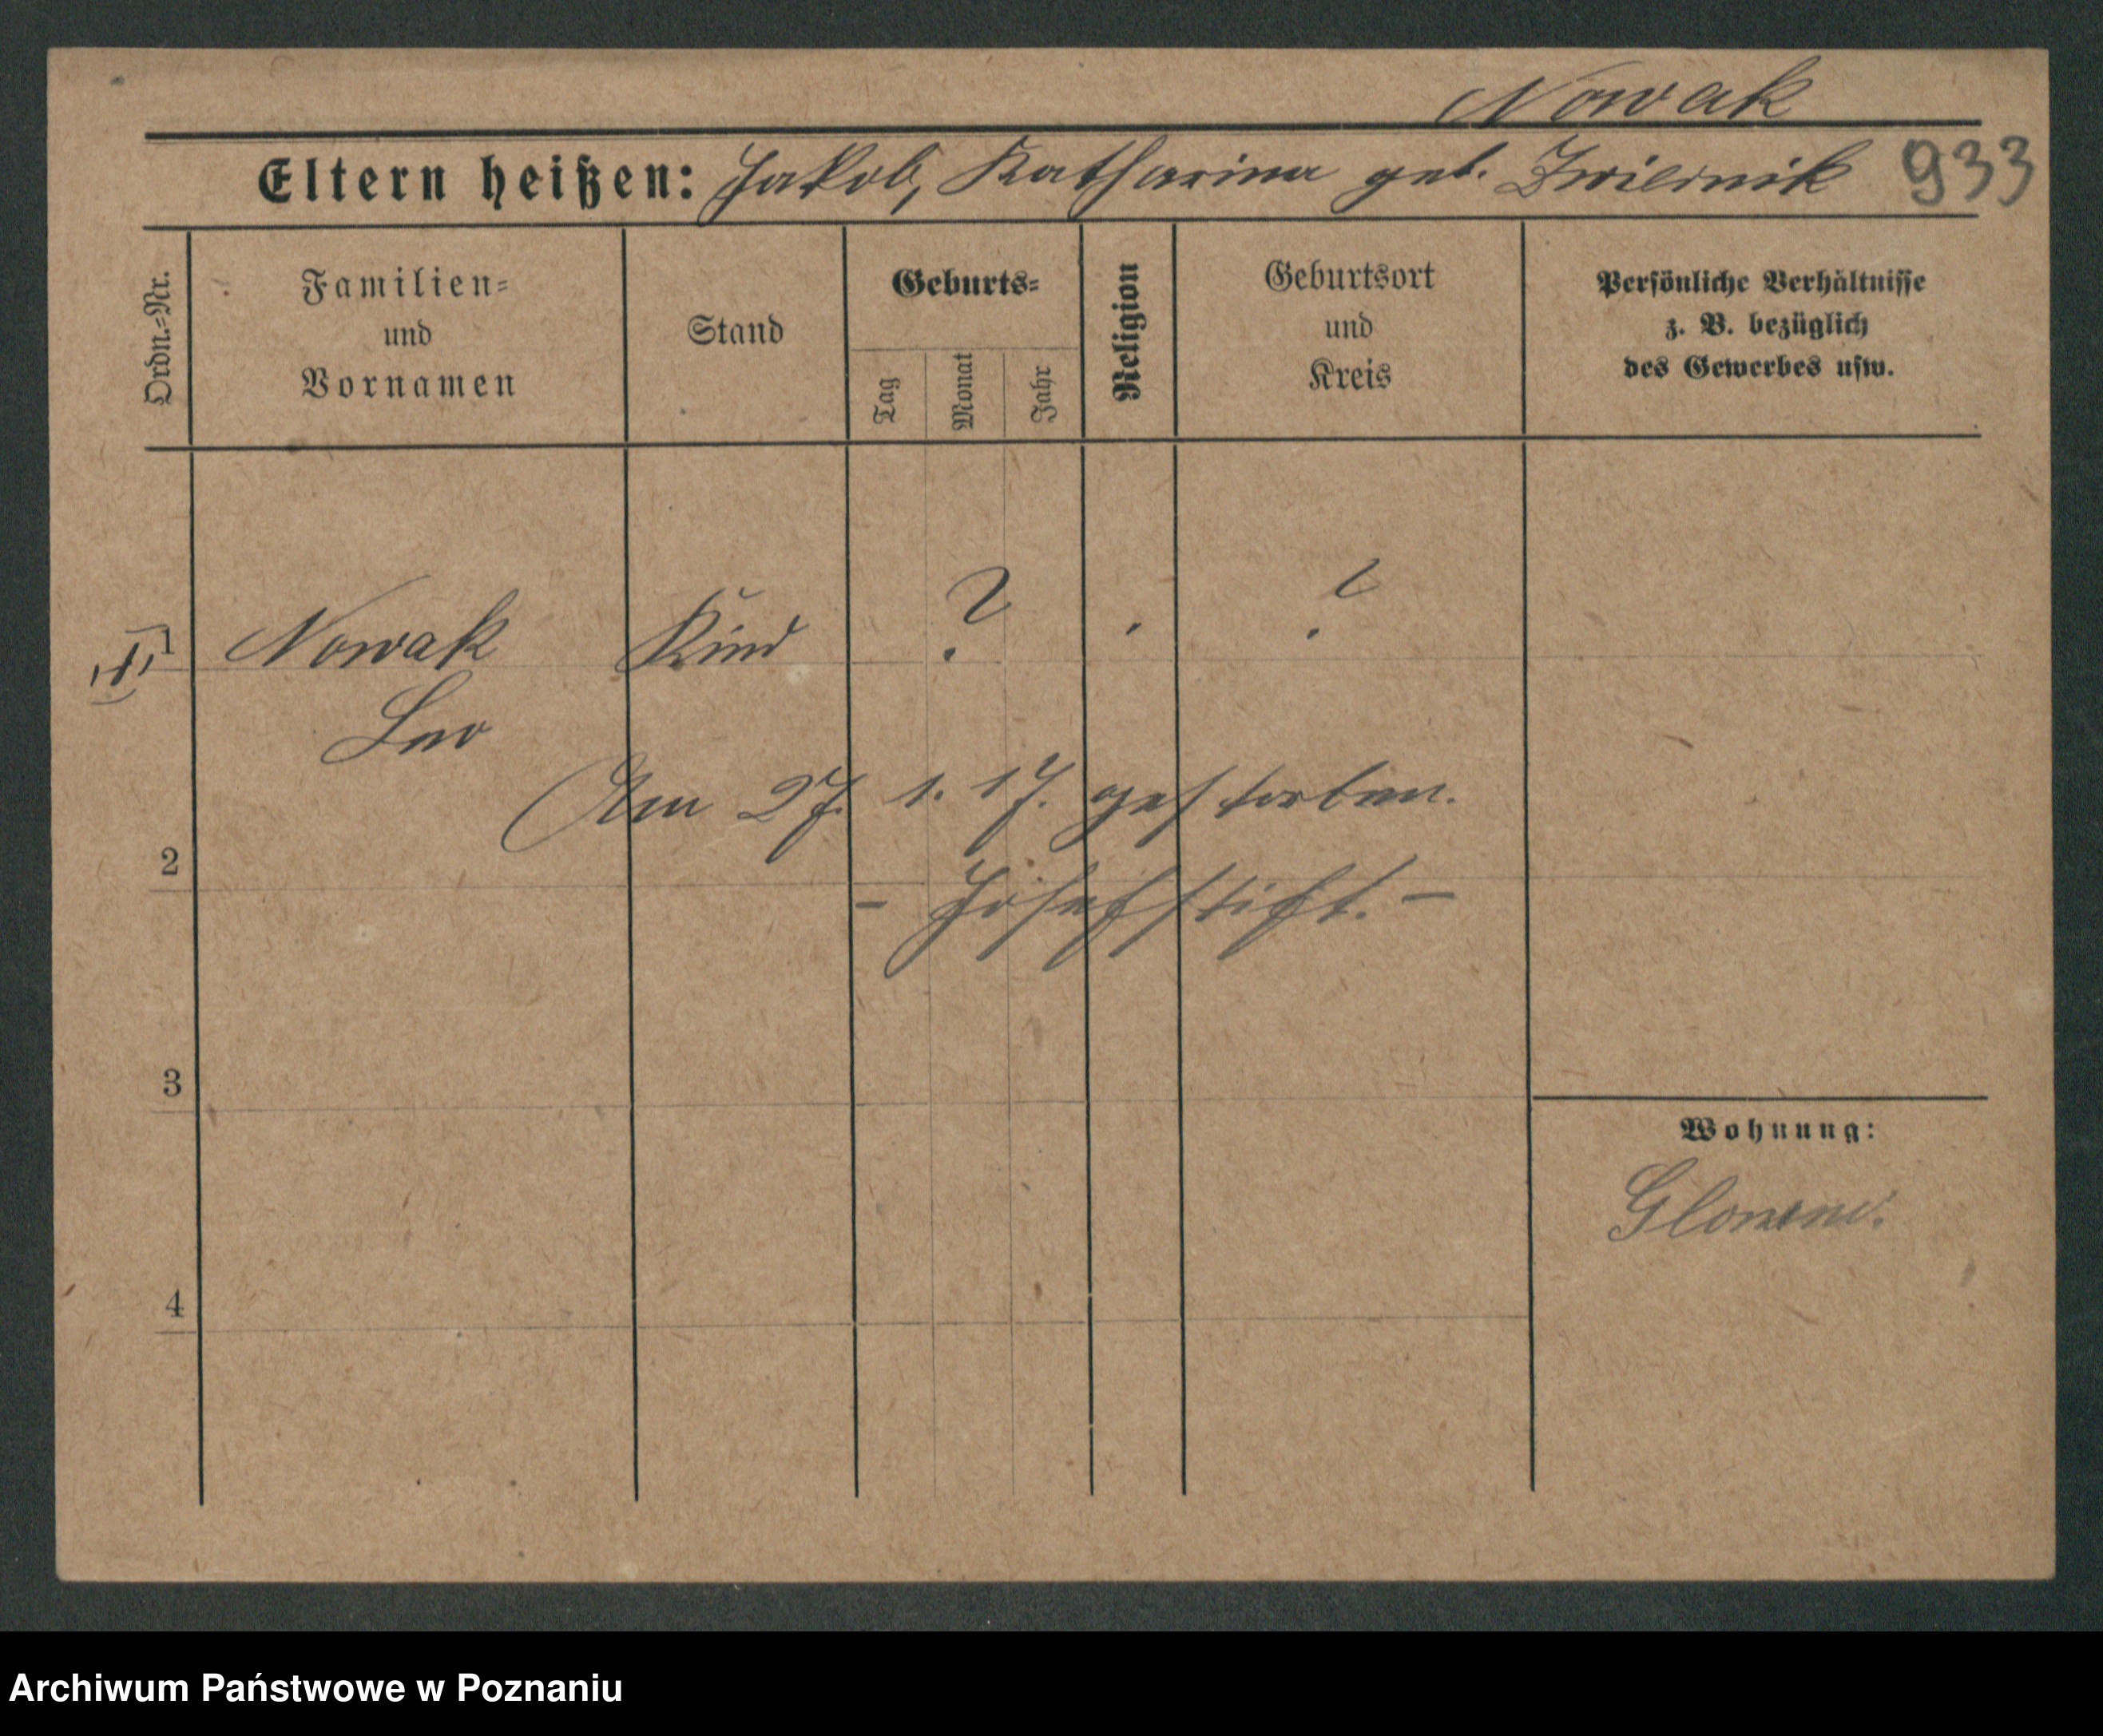 Nowak
Eltern heißen: Jakob, Katharina geb. Zwiernik 933
Ordn.-Nr.
Familien-
und
Vornamen
Stand
Geburts-
Tag
Monat
Jahr
Religion
Geburtsort
und
Kreis
Persönliche Verhältnisse
z. B. bezüglich
des Gewerbes usw.
Nowak Kind ? . ?
Leo
Am 27. 1. 17. gestorben.
2
- Josefstift. -
3
Wohnung:
4
Archiwum Państwowe w Poznaniu